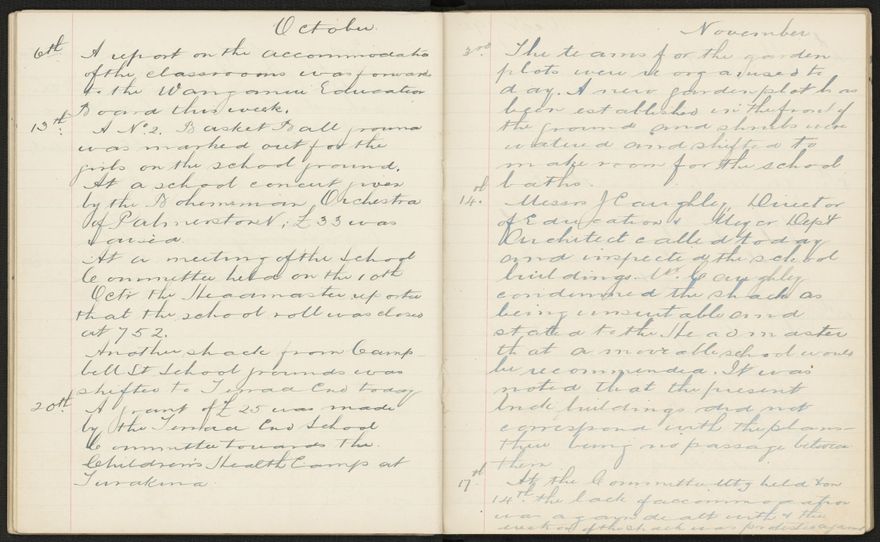 October
6th A report on the accommodatio
of the classrooms was forward
to the Wanganui Education
Board this week.
13th A No 2. Basket Ball ground
was marked out for the
girls on the school ground.
At a school concert given
by the Bohemian Orchestra
of Palmerston N; £33 was
raised
At a meeting of the School
Committee held on the 10th
Octr the Headmaster reported
that the school roll was closed
at 752.
Another shack from Camp
bell St School grounds was
shifted to Terrace End today
20th A grant of £25 was made
by the Terrace End School
Committee towards the
Children's Health Camp at
Turakina
November
The teams for the garden
plots were reorganised to
day. A new garden plot has
been established in the front of
the ground and shrubs were
watered and shifted to
make room for the school
baths.
14. Messrs J Caughley, Director
of Education & Dept
Architect called today
and inspected the school
buildings. Mr. Caughley
condemned the shack as
being unsuitable and
stated to the Headmaster
that a moveable school would
be recommended. It was
noted that the present
buildings did not
correspond with the plans
there being no passage between
them
17 At the Committee Mtg held on
14th the lack of accommodation
was again dealt with & the
erection of the shack was protested against